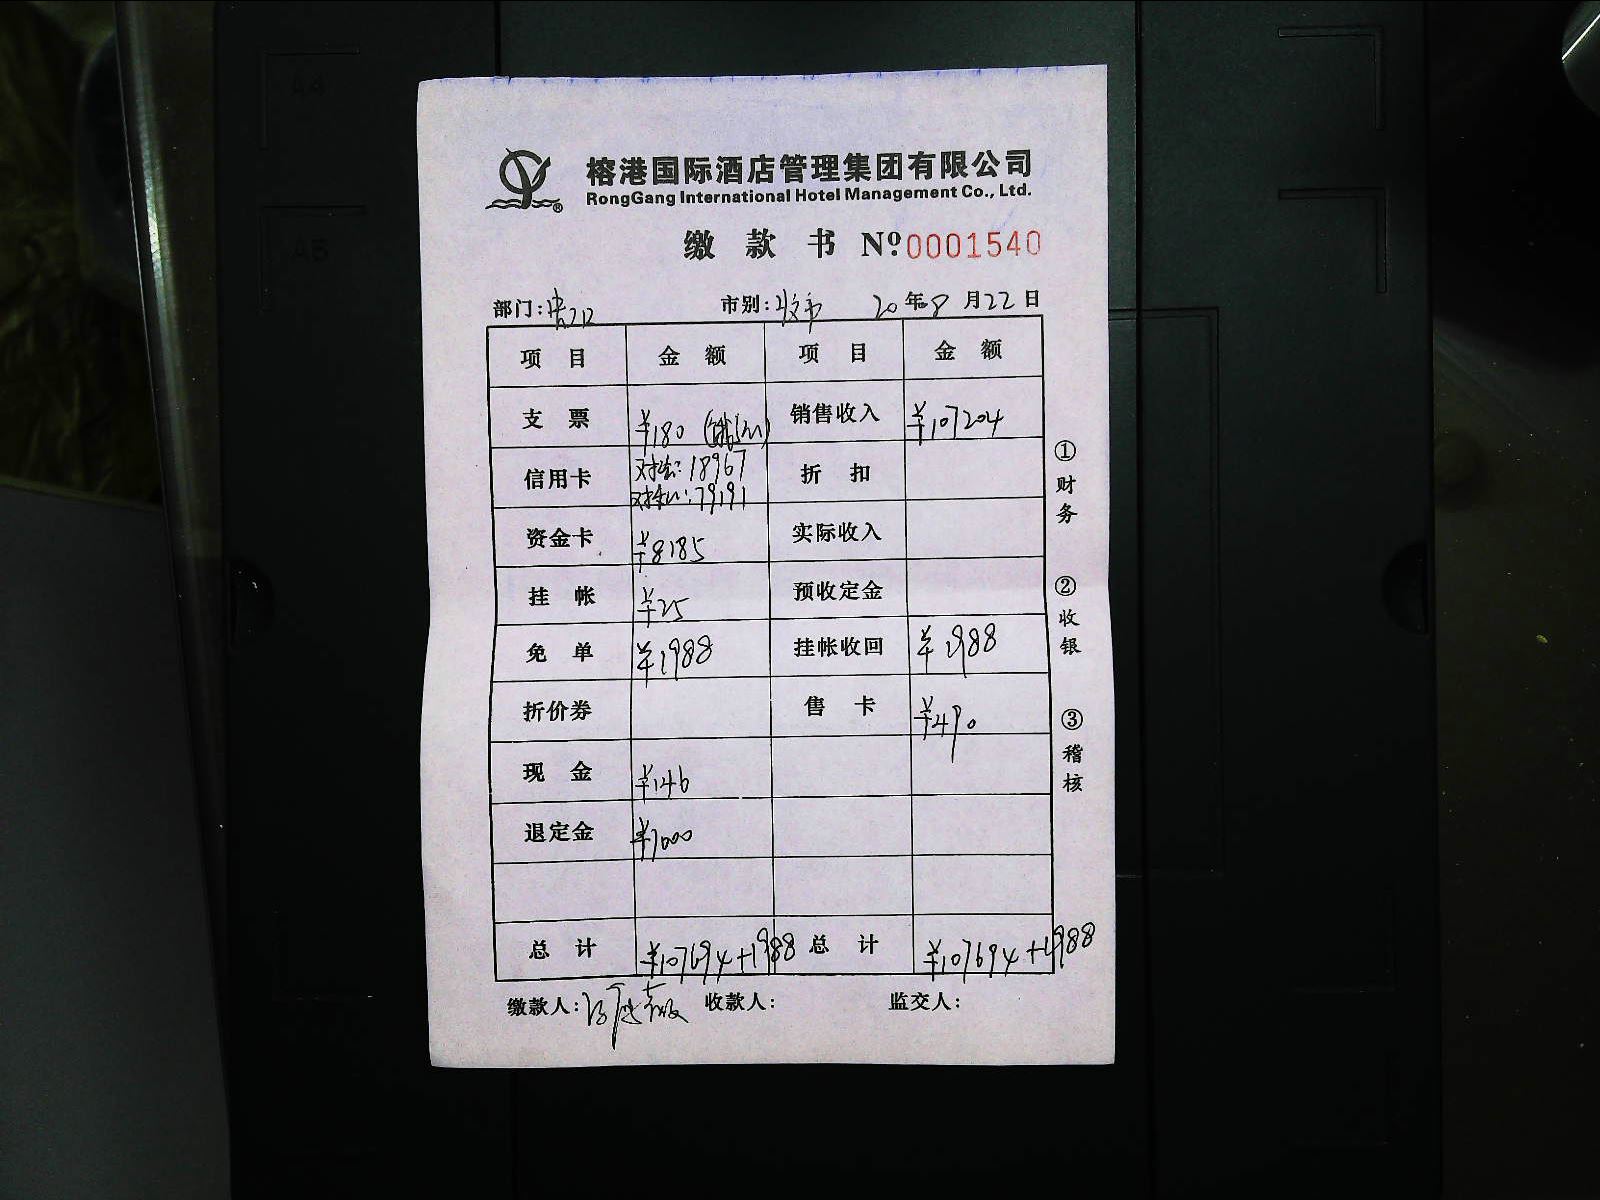 榕港国际酒店管理集团有限公司
RongGang International Hotel Management Co., Ltd.
缴款书 Nº 0001540
部门: 市别: 20年8月22日
项目 金额 项目 金额
支票 ¥180 销售收入 ¥107204
信用卡 18967 折扣
79191
资金卡 ¥8185 实际收入
挂帐 ¥25 预收定金
免单 ¥1988 挂帐收回 ¥1988
折价券 售卡 ¥490
现金 ¥146
退定金 ¥1000
总计 ¥107694+1988 总计 ¥107694+1988
缴款人: 收款人: 监交人:
①财务
②收银
③稽核
A4
A5